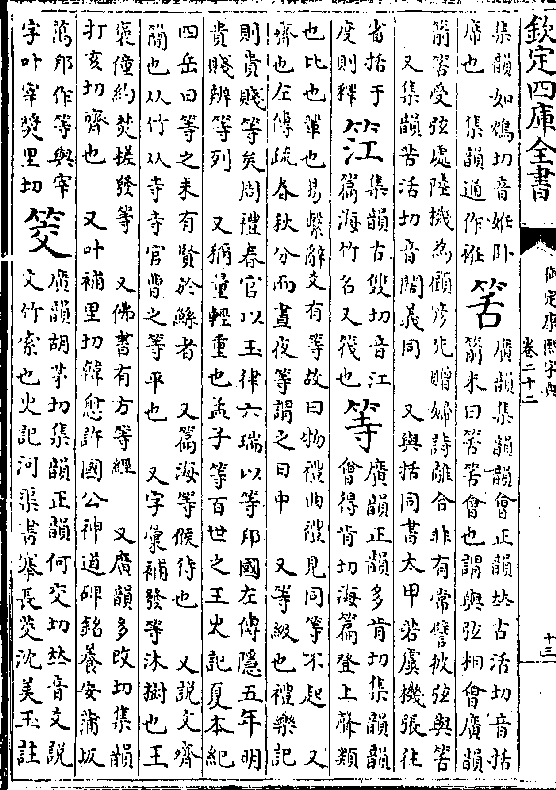 欽定四庫全書
御定康熙字典
卷二十二
十三
集韻如鴆切音妊卧
席也 集韻通作袵
筈
廣韻集韻韻會正韻𠀤古活切音括
箭末曰筈筈會也謂與弦相會廣韻
箭筈受弦處陸機為顧彥先贈婦詩離合非有常譬彼弦與筈
又集韻苦活切音闊義同 又與括同書太甲若虞機張往
省括于
度則釋
集韻古雙切音江
篇海竹名又筏也
等
廣韻多肯切集韻韻
會得肯切海篇登上聲類
也比也輩也易繫辭爻有等故曰物禮曲禮見同等不起 又
齊也左傳疏春秋分而晝夜等謂之日中 又等級也禮樂記
則貴賤等矣周禮春官以玉律六瑞以等邦國左傳隱五年明
貴賤辨等列 又稱量輕重也孟子等百世之王史記夏本紀
四岳曰等之未有賢於鯀者 又篇海等候待也 又說文齊
簡也从竹从寺寺官曹之等平也 又字彙補發等沐樹也王
褒僮約焚槎發等 又佛書有方等經 又廣韻多改切集韻
打亥切齊也 又叶補里切韓愈許國公神道碑銘養安蒲坂
萬邦作等與宰
字叶宰獒里切
筊
廣韻胡茅切集韻正韻何交切𠀤音爻說
文竹索也史記河渠書搴長茭沈美玉註